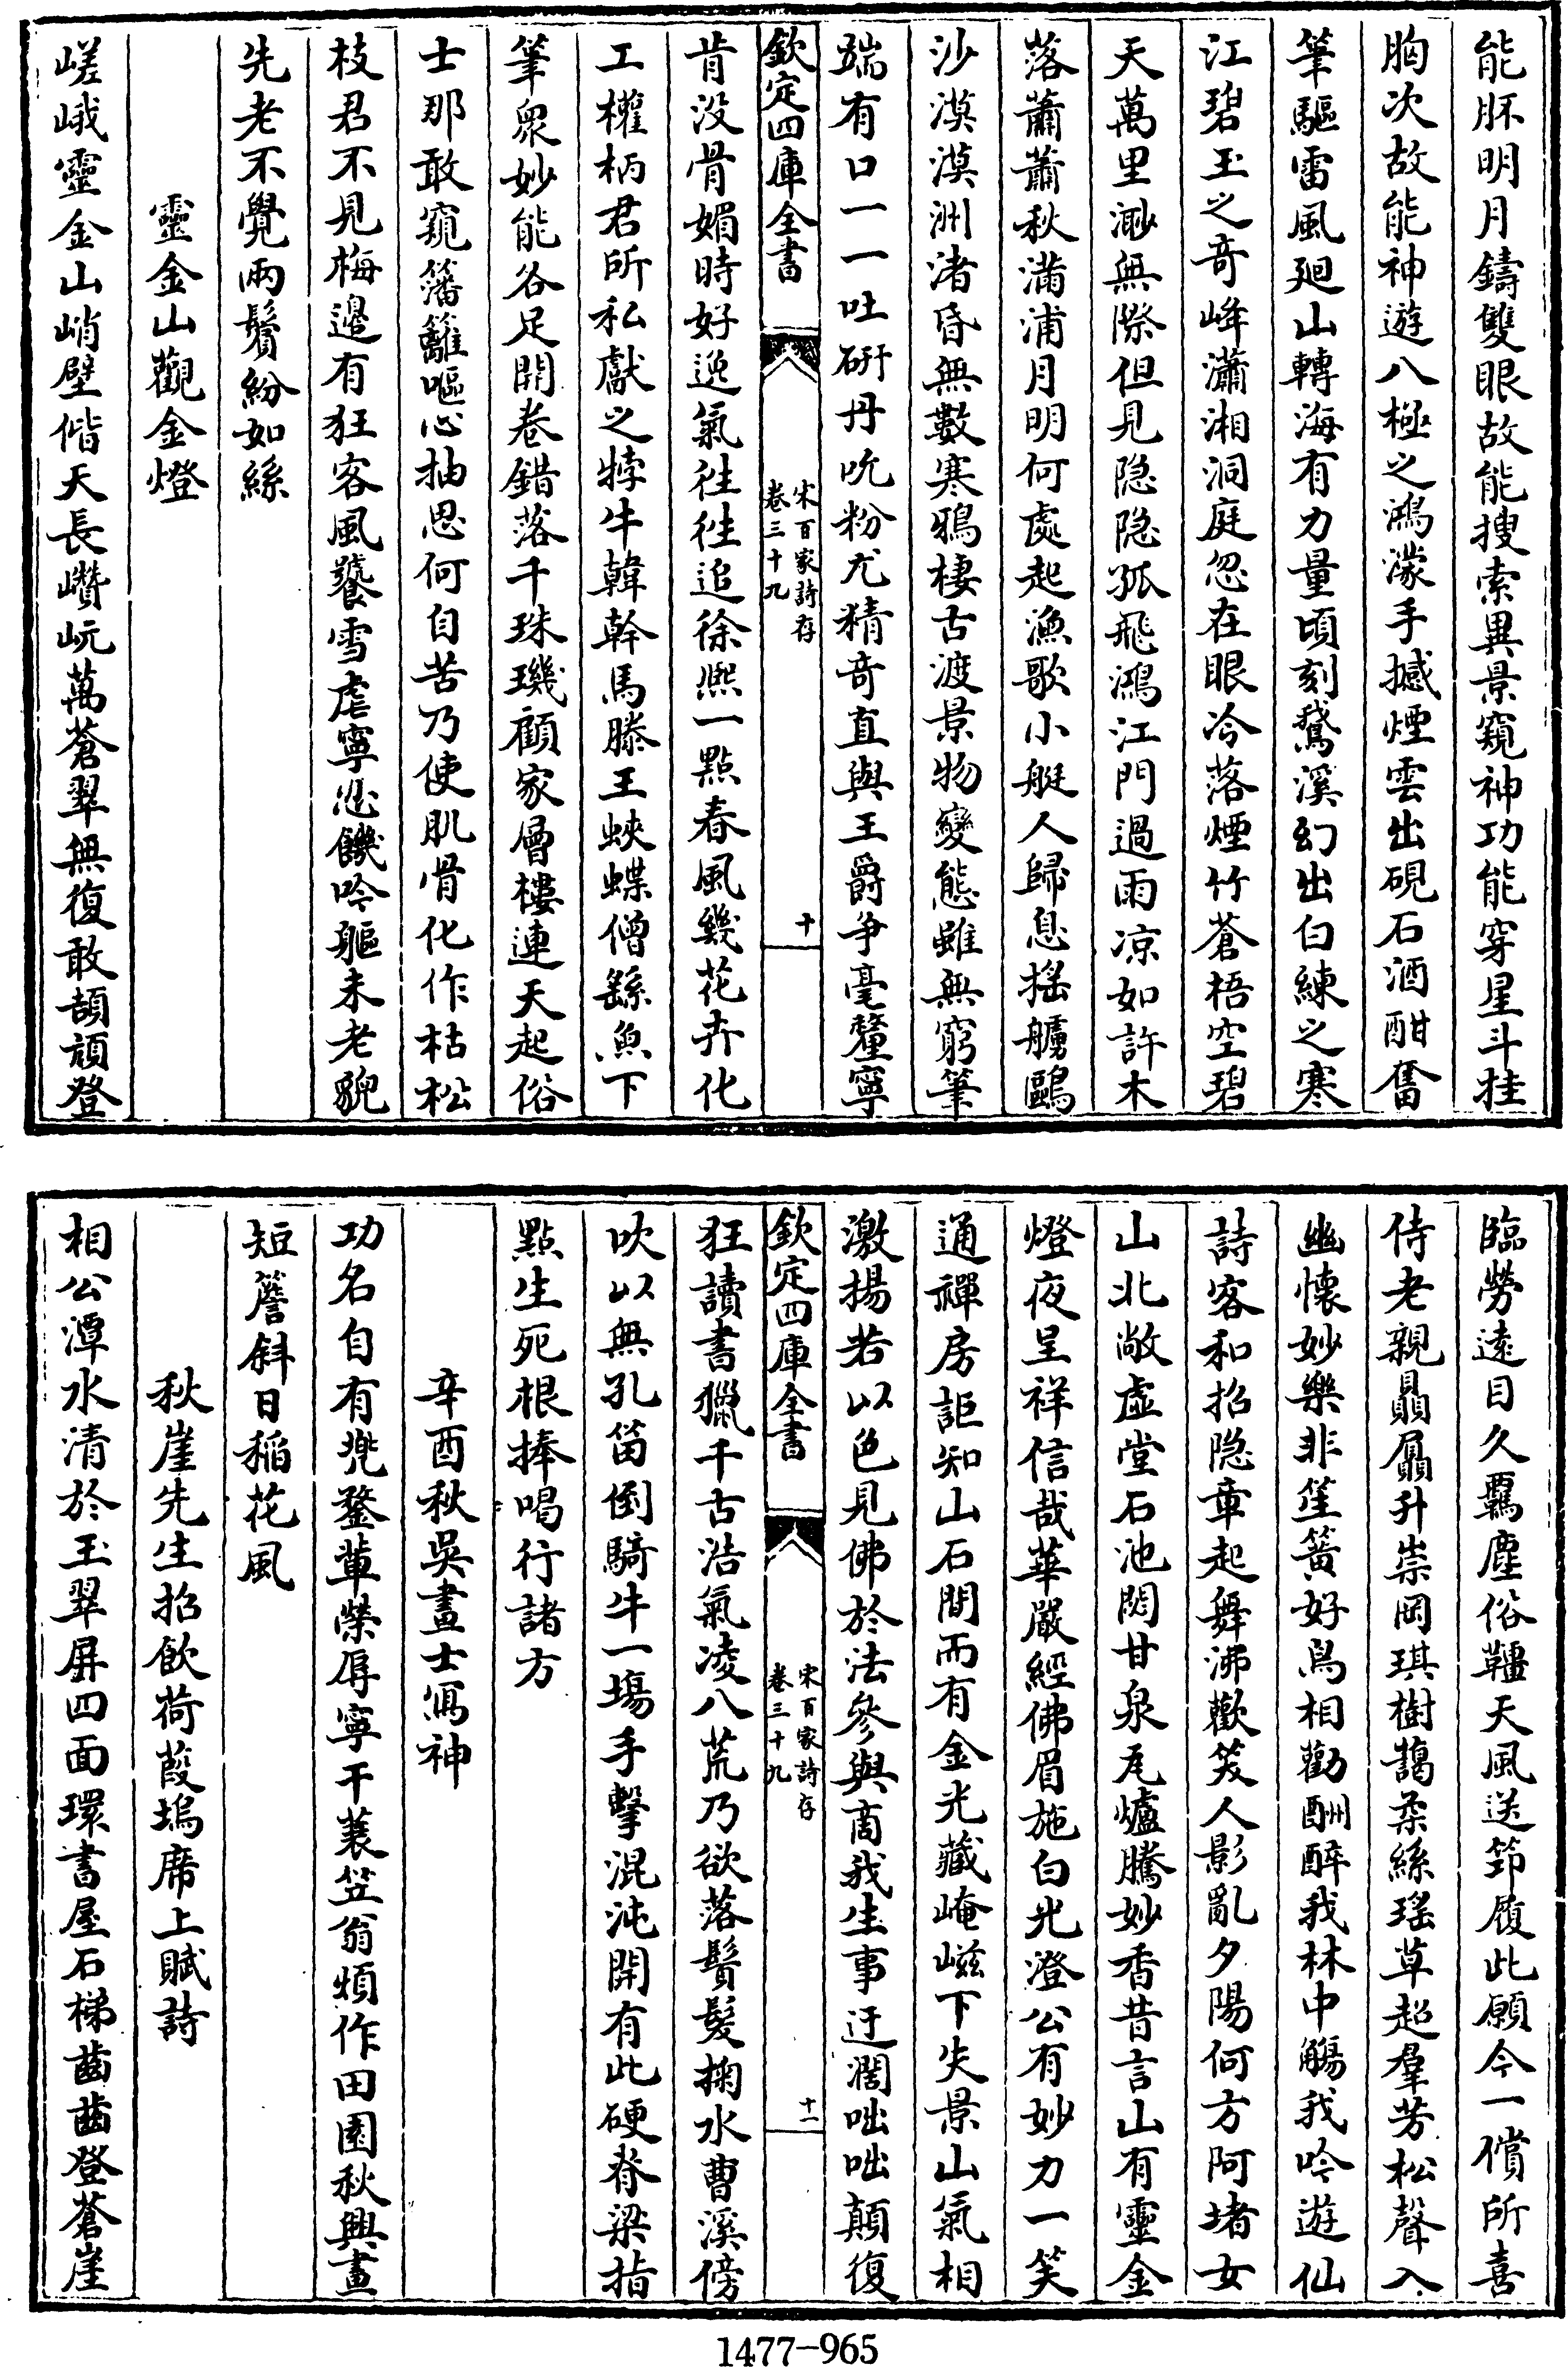 能胚明月鑄雙眼故能搜索異景窺神功能穿星斗挂
胸次故能神遊八極之鴻濛手撼煙雲出硯石酒酣奮
筆驅雷風廻山轉海有力量頃刻鵞溪幻出白練之寒
江碧玉之竒峰瀟湘洞庭忽在眼冷落煙竹蒼梧空碧
天萬里渺無際但見隐隐孤飛鴻江門過雨凉如許木
落蕭蕭秋滿浦月明何處起漁歌小艇人歸息揺艣鷗
沙漠漠洲渚昏無數寒鴉棲古渡景物變態雖無窮筆
端有口一一吐研丹吮粉尤精竒直與王爵争毫釐寧
欽定四庫全書
宋百家詩存
卷三十九
十
肯没骨媚時好逸氣徃徃追徐熈一點春風幾花卉化
工權柄君所私獻之㹀牛韓幹馬滕王蛺蝶僧繇魚下
筆衆妙能各足開卷錯落千珠璣顧家層樓連天起俗
士那敢窺藩籬嘔心抽思何自苦乃使肌骨化作枯松
枝君不見梅邊有狂客風饕雪虐寧忍饑吟軀未老貌
先老不覺兩鬢紛如絲
靈金山觀金燈
嵯峨靈金山峭壁偕天長巑岏萬蒼翠無復敢頡頏登
臨勞遠目久羈塵俗韁天風送笻履此願今一償所喜
侍老親贔屭升崇岡琪樹藹柔絲瑶草超羣芳松聲入
幽懷妙樂非笙簧好鳥相勸酬醉我林中觴我吟遊仙
詩客和招隐章起舞沸歡笑人影亂夕陽何方阿堵女
山北敞虚堂石池閟甘泉瓦爐騰妙香昔言山有靈金
燈夜呈祥信哉華嚴經佛眉施白光澄公有妙力一笑
通禪房詎知山石間而有金光藏崦嵫下失景山氣相
激揚若以色見佛於法參與商我生事迂濶咄咄顛復
欽定四庫全書
宋百家詩存
卷三十九
十一
狂讀書獵千古浩氣凌八荒乃欲落鬚髮掬水曹溪傍
吹以無孔笛倒騎牛一場手擊混沌開有此硬脊梁指
點生死根捧喝行諸方
辛酉秋吳畫士寫神
功名自有兠鍪輩榮辱寧干蓑笠翁煩作田園秋興畫
短簷斜日稲花風
秋崖先生招飲荷葭塢席上賦詩
相公潭水清於玉翠屏四面環書屋石梯齒齒登蒼崖
1477-965